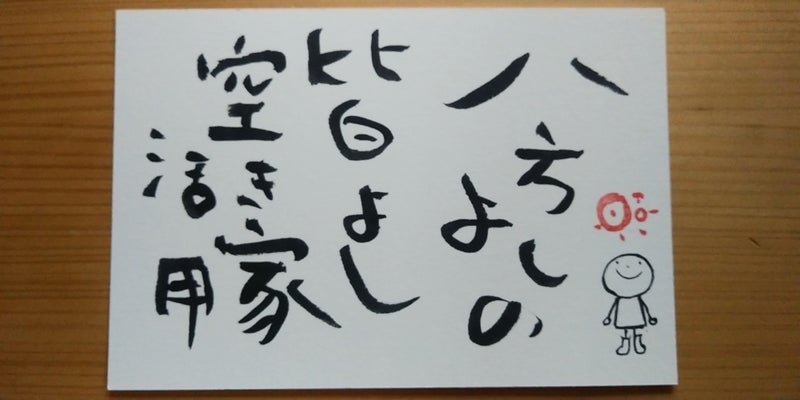 八方よしの
皆よし
空き家
活用